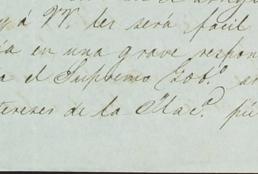 y á VV. les será facil
en una grave respon
a el Supremo Gob.º
tereses de la Nac.ⁿ